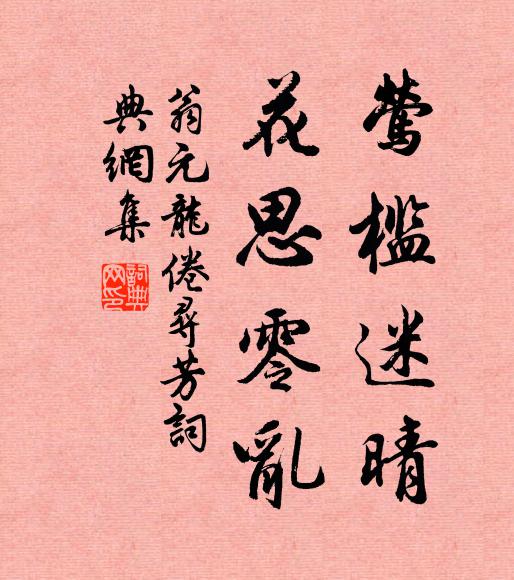 鶯檻迷晴
花思零亂
翁元龍倦尋芳詞
典網集
詞典
网印